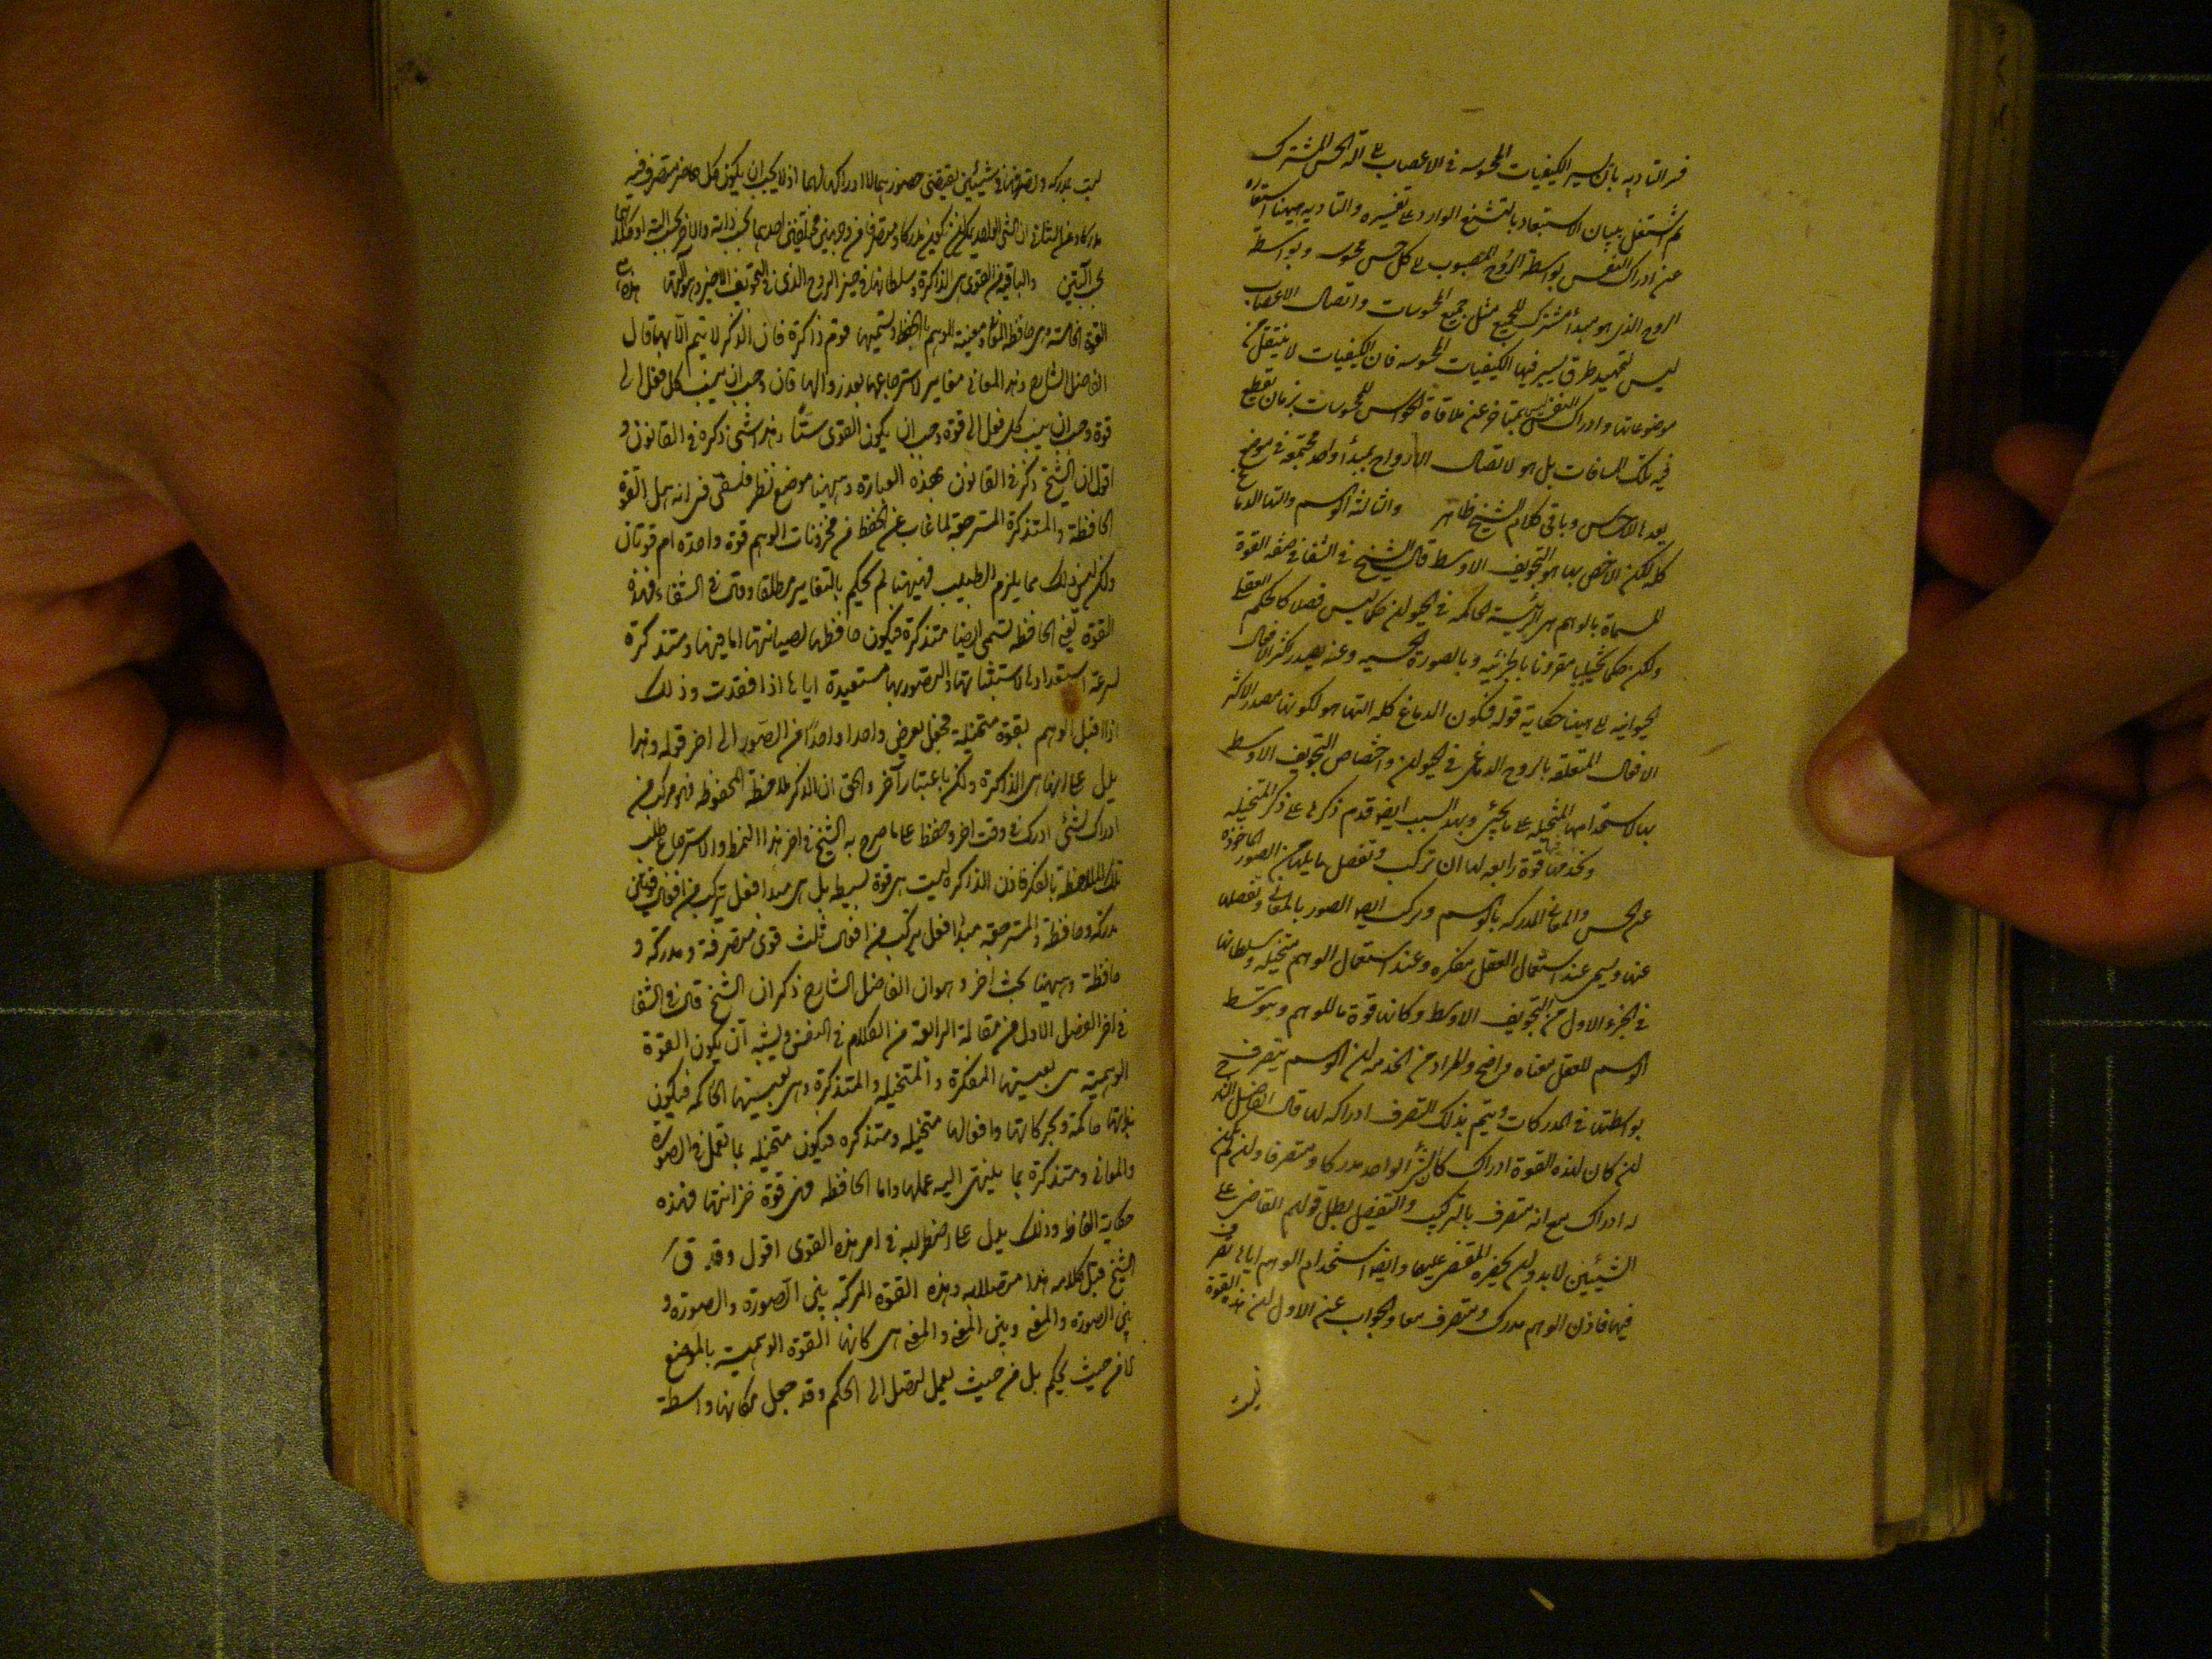 فسر التادية بان يسير الكيفيات المحسوسه في الاعصاب الى آلة الحس المشترك
ثم اشتغل ببيان الاستبعاد بالتشنيع الوارد على تفسيره والتاديه ههنا استعارة
عن ادراك النفس بواسطة الروح المصبوب الى كل حس محسوسه وبواسطة
الروح الذي هو مبدأ مشترك للجميع مثل جميع المحسوسات واتصال الاعصاب
ليس لتمهيد طرق يسير فيها الكيفيات المحسوسه فان الكيفيات لا ينتقل عن
موضوعاتها وادراك النفس ليس بمتاخر عن ملاقاة الحواس للمحسوسات بزمان تقطع
فيه تلك المسافات بل هو لاتصال الارواح بمبدأ واحد مجتمعة في موضع
يعد الاحساس وباقي كلام الشيخ ظاهر والثالثة الوهم والتها الدماغ
كله لكن الاخص بها هو التجويف الاوسط قال الشيخ في الشفا في صفه القوة
المسماة بالوهم هي الرئيسة الحاكمه في الحيوان حكما ليس فصلا كالحكم العقلي
ولكن حكما تخيليا مقرونا بالجزئيه وبالصورة الحسيه وعنه يصدر اكثر الافعال
الحيوانيه الى ههنا حكاية قوله فكون الدماغ كله التها هو لكونها مصدر الاكثر
الافعال المتعلقه بالروح الدماغي في الحيوان واختصاص التجويف الاوسط
بها لاستخدامها المتخيله على ما يجئ وبهذا السبب ايضا قدم ذكرها على ذكر المتخيله
وتخدمها فيها قوة رابعه لها ان تركب وتفصل ما يليها من الصور الماخوذة
عن الحس والمعاني المدركه بالوهم وتركب ايضا الصور بالمعاني وتفصلها
عنها ويسمى عند استعمال العقل مفكره وعند استعمال الوهم متخيله وسلطانها
في الجزء الاول من التجويف الاوسط وكانها قوة ما للوهم وبتوسط
الوهم للعقل معناه واضح والمراد من الخدمه ان الوهم يتصرف
بواسطتها في المدركات ويتم بذلك التصرف ادراكه لها قال الفاضل الشارح
ان كان لهذه القوة ادراك كان الشئ الواحد مدركا ومتصرفا وان لم يكن
له ادراك مع انه متصرف بالتركيب والتفصيل بطل قولهم القاضي على
الشيئين لابد وان يحضره المقضي عليهما وايضا استخدام الوهم اياها تصرف
فيها فاذن الوهم مدرك ومتصرف معا والجواب عن الاول ان هذه القوة
ليست
ليست بمدركه وتصرفها في شيئين يقتضي حضورهما لا ادراكها لهما اذ لا يجب ان يكون كل حاضر متصرف فيه
مدركا وعن الثاني ان الشئ الواحد يمكن ان يكون مدركا ومتصرفا من وجهين مختلفين احدهما بحسب ذاته والاخر بحسب آلته او كلاهما
بحسب آلتين والباقيه من القوى هي الذاكرة وسلطانها في حيز الروح الذي في التجويف الاخير وهو آلتها هذه هي
القوة الخامسة وهي حافظة للمعاني ومعينة للوهم بالحفظ وتسميها قوم ذاكرة فان الذكر لا يتم الا بها قال
الفاضل الشارح حفظ المعاني مغاير لاسترجاعها بعد زوالها فان وجب ان ينسب كل فعل الى
قوة وجب ان ينسب كل فعل الى قوة وجب ان يكون القوى ستا وهذا شئ ذكره في القانون و
اقول ان الشيخ ذكر في القانون بهذه العبارة وههنا موضع نظر فلسفي في انه هل القوة
الحافظة والمتذكرة المسترجعة لما غاب عن الحفظ من مخزونات الوهم قوة واحدة ام قوتان
ولكن ليس ذلك مما يلزم الطبيب فههنا لم يحكم بالتغاير مطلقا وقال في الشفاء وهذه
القوة يعني الحافظه تسمى ايضا متذكرة فيكون حافظه لصيانتها ما فيها ومتذكرة
لسرعة استعدادها لاستثباتها والتصور بها مستعيدة اياها اذا فقدت وذلك
اذا اقبل الوهم بقوة متخيلة فجعل يعرض واحدا واحدا من الصور الى اخر قوله وهذا
يدل على انها هي الذاكرة ولكن باعتبار آخر والحق ان الذكر ملاحظة المحفوظ فهو مركب من
ادراك لشئ ادرك في وقت اخر وحفظ على ما صرح به الشيخ في اخر هذا النمط والاسترجاع طلب
تلك الملاحظة بالفكر فاذن الذاكرة ليست هي قوة بسيطه بل هي مبدا فعل يتركب من افعال قوتين
مدركة وحافظة والمسترجعة مبدأ فعل يتركب من افعال ثلث قوى متصرفة ومدركة و
حافظة وههنا بحث آخر وهو ان الفاضل الشارح ذكر ان الشيخ قال في الشفا
في اخر الفصل الاول من مقالة الرابعة من الكلام في النفس ويشبه ان يكون القوة
الوهمية هي بعينها المفكرة والمتخيله والمتذكرة وهي بعينها الحاكمه فيكون
بذاتها حاكمة وبحركاتها وافعالها متخيله ومتذكره فيكون متخيله بما تعمل في الصورة
والمعاني ومتذكرة بما ينتهي اليه عملها واما الحافظه فهي قوة خزانتها فهذه
حكاية الفاظه وذلك يدل على اضطرابه في امر هذه القوى اقول وقد قال
الشيخ قبل كلامه هذا متصلا به وهذه القوة المركبه بين الصورة والصورة و
بين الصورة والمعنى وبين المعنى والمعنى هي كانها القوة الوهمية بالموضع
لا من حيث يحكم بل من حيث يعمل لتصل الى الحكم وقد جعل مكانها واسطة